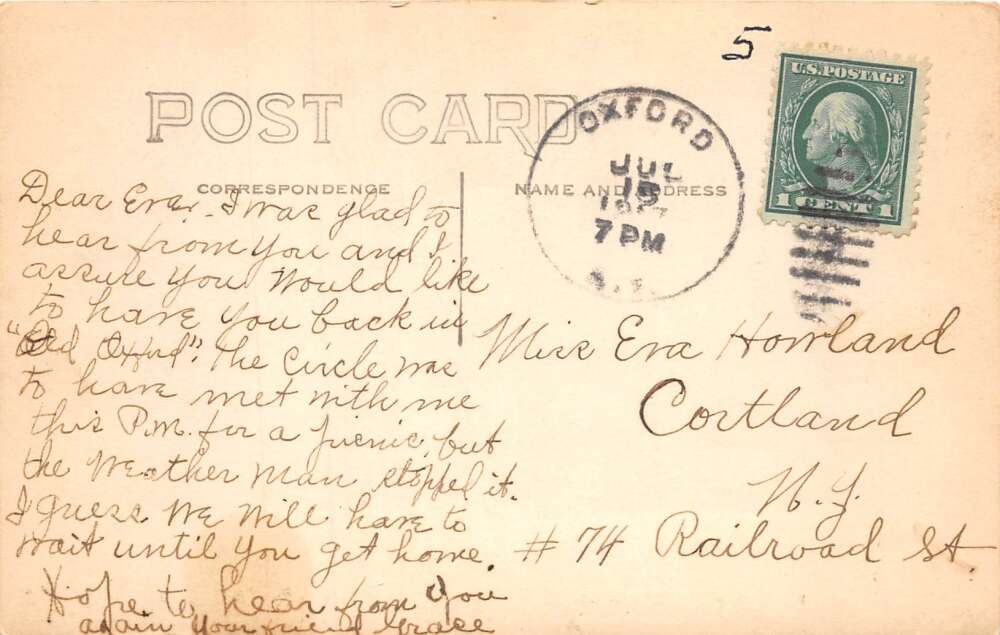 5
U.S. POSTAGE
1 CENT 1
OXFORD
JUL
7 PM
POST CARD
CORRESPONDENCE
NAME AND ADDRESS
Dear Eva:- I was glad to
hear from you and I
assure you would like
to have you back in
"Old Oxford". The Circle was
to have met with me
this P.M. for a picnic, but
the Weather Man stopped it.
I guess we will have to
wait until you get home.
Hope to hear from you
again Your friend Grace
Miss Eva Howland
Cortland
N.Y.
# 74 Railroad St.